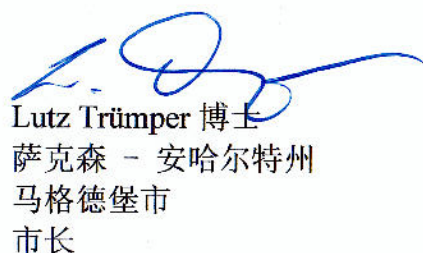 Lutz Trümper 博士
萨克森 - 安哈尔特州
马格德堡市
市长